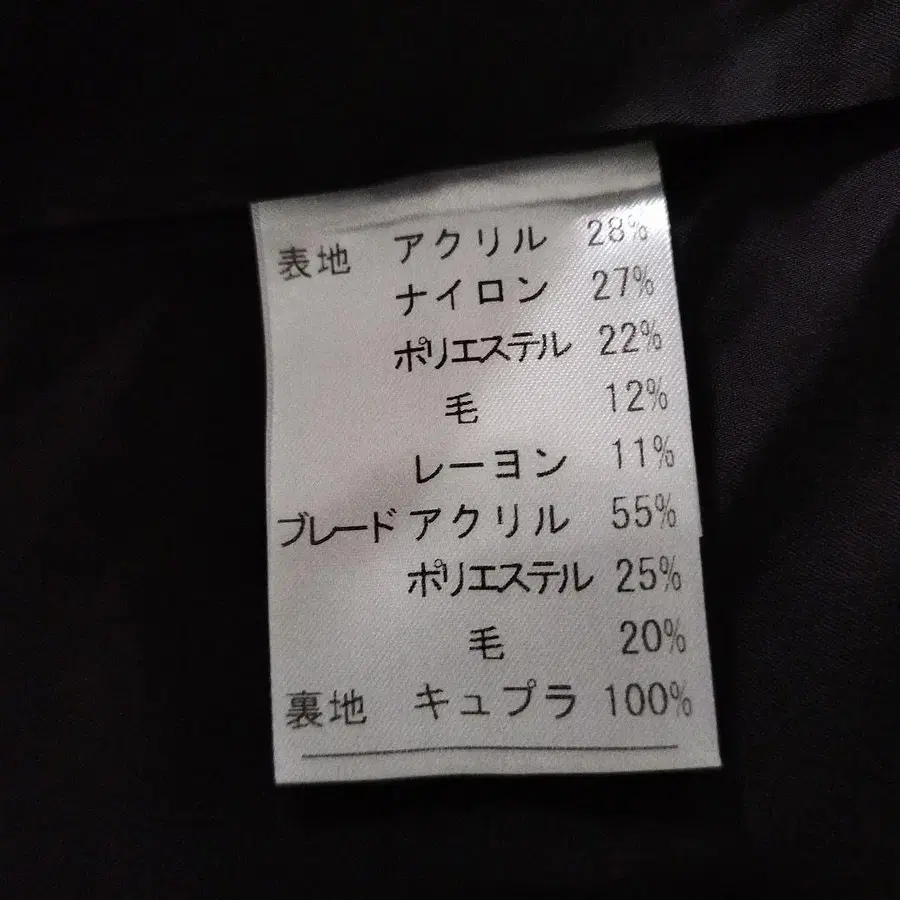 表地 アクリル 28%
ナイロン 27%
ポリエステル 22%
毛 12%
レーヨン 11%
ブレード アクリル 55%
ポリエステル 25%
毛 20%
裏地 キュプラ 100%